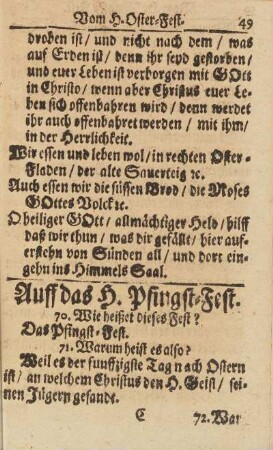 Vom H. Oster-Fest. 49
droben ist / und nicht nach dem / was
auf Erden ist / denn ihr seyd gestorben /
und euer Leben ist verborgen mit GOtt
in Christo / wenn aber Christus euer Le-
ben sich offenbahren wird / denn werdet
ihr auch offenbahret werden / mit ihm /
in der Herrlichkeit.
Wir essen und leben wol / in rechten Oster-
Fladen / der alte Sauerteig ꝛc.
Auch essen wir die süssen Brod / die Moses
GOttes Volck ꝛc.
O heiliger GOtt / allmächtiger Held / hilff
daß wir thun / was dir gefällt / hier auf-
erstehn von Sünden all / und dort ein-
gehn ins Himmels Saal.
Auff das H. Pfingst-Fest.
70. Wie heißet dieses Fest?
Das Pfingst-Fest.
71. Warum heist es also?
Weil es der funffzigste Tag nach Ostern
ist / an welchem Christus den H. Geist / sei-
nen Jügern gesandt.
C 72. War